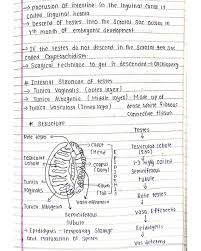 → Protrusion of intestine in the inguinal canal is
called Inguinal hernia
→ Descend of testes into the scrotal sac occurs in
7th month of embryonic development
→ If the testes do not descend in the scrotal sac
called Cryptorchidism.
→ Surgical technique to get it descended →
# Internal Structure of testes
→ Tunica Vaginalis (outer layer)
→ Tunica Albuginea (Middle layer) - Made up of
→ Tunica Vasculosa (Inner layer) dense white fibrous
connective tissue
# Structure
Testes
↓
Rete testis
Caput
(Head)
Testicular lobule
(250)
↓
Testicular
lobule
(1-3) highly coiled
Seminiferous
tubule
↓
Corpus
(body)
Tunica
Vaginalis
Cauda
(tail)
Rete testes
↓
Tunica Albuginea
Vasa efferentia
Vasa Efferentia
↓
Seminiferous
tubule
Epididymis
↓
→ Epididymis - Temporary Storage
and Maturation of sperms
Vas deferens